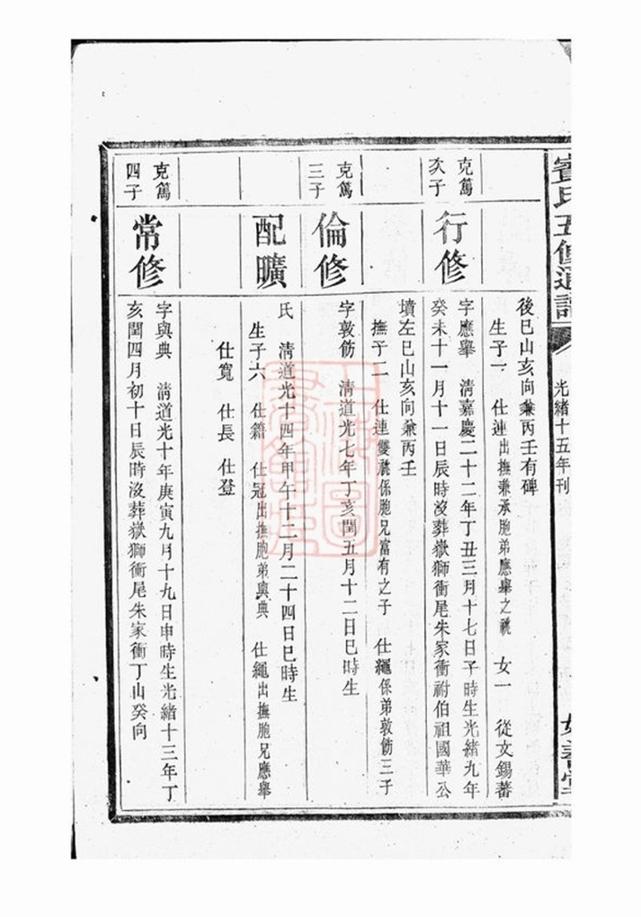 氏五修通譜
光緒十五年刊
善堂
後巳山亥向兼丙壬有碑
生子一 仕連出撫兼承胞弟應舉之祧 女一 從文錫蕃
克篤
次子
行修
字應舉 清嘉慶二十二年丁丑三月十七日子時生光緒九年
癸未十一月十一日辰時沒葬嶽獅衝尾朱家衝祔伯祖國華公
墳左巳山亥向兼丙壬
撫子二 仕連雙祧係胞兄富有之子 仕繩係弟敦飭三子
克篤
三子
倫修
字敦飭 清道光七年丁亥閏五月十二日巳時生
配曠
氏 清道光十四年甲午十二月二十四日巳時生
生子六 仕籍 仕冠出撫胞弟與典 仕繩出撫胞兄應舉
仕寬 仕長 仕登
克篤
四子
常修
字與典 清道光十年庚寅九月十九日申時生光緒十三年丁
亥閏四月初十日辰時沒葬嶽獅衝尾朱家衝丁山癸向